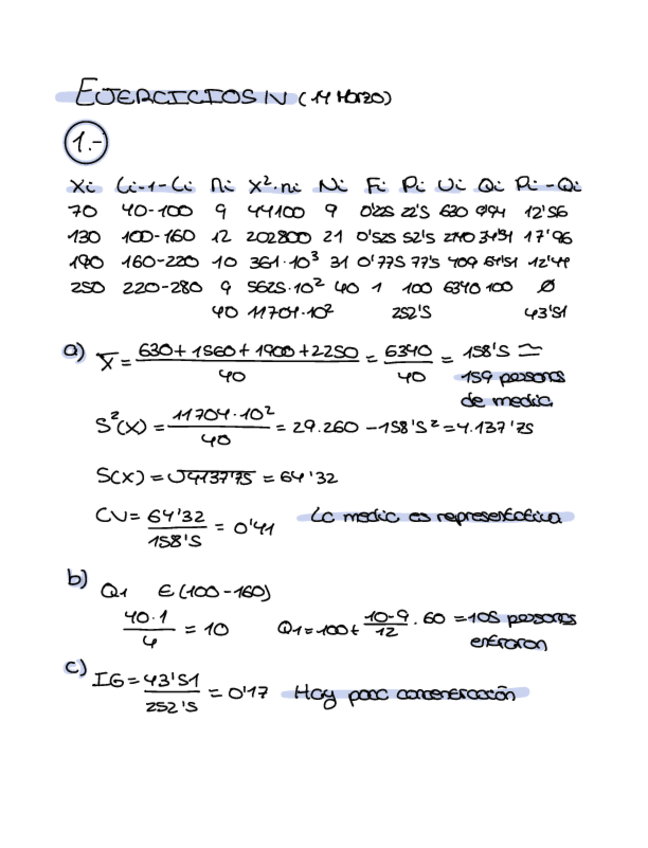 EJERCICIOS IV (14 Marzo)
1.-
Xi Li-1-Li ni X²·ni Ni Fi Pi Ui Qi Pi-Qi
70 40-100 9 44100 9 0'225 22'5 630 9'94 12'56
130 100-160 12 202800 21 0'525 52'5 2190 34'54 17'96
190 160-220 10 361·10³ 31 0'775 77'5 409 64'51 12'99
250 220-280 9 5625·10² 40 1 100 6340 100 ∅
40 11704·10² 252'5 43'51
a) X̄ = 630+1560+1900+2250 / 40 = 6340 / 40 = 158'5 ≃ 159 personas de media
S²(X) = 11704·10² / 40 = 29.260 - 158'5² = 4.137'75
S(X) = √4137'75 = 64'32
CV = 64'32 / 158'5 = 0'41 La media es representativa
b) Q1 ∈ (100-160)
40·1 / 4 = 10 Q1 = 100 + 10-9 / 12 · 60 = 105 personas entraron
c) IG = 43'51 / 252'5 = 0'17 Hay poca concentración